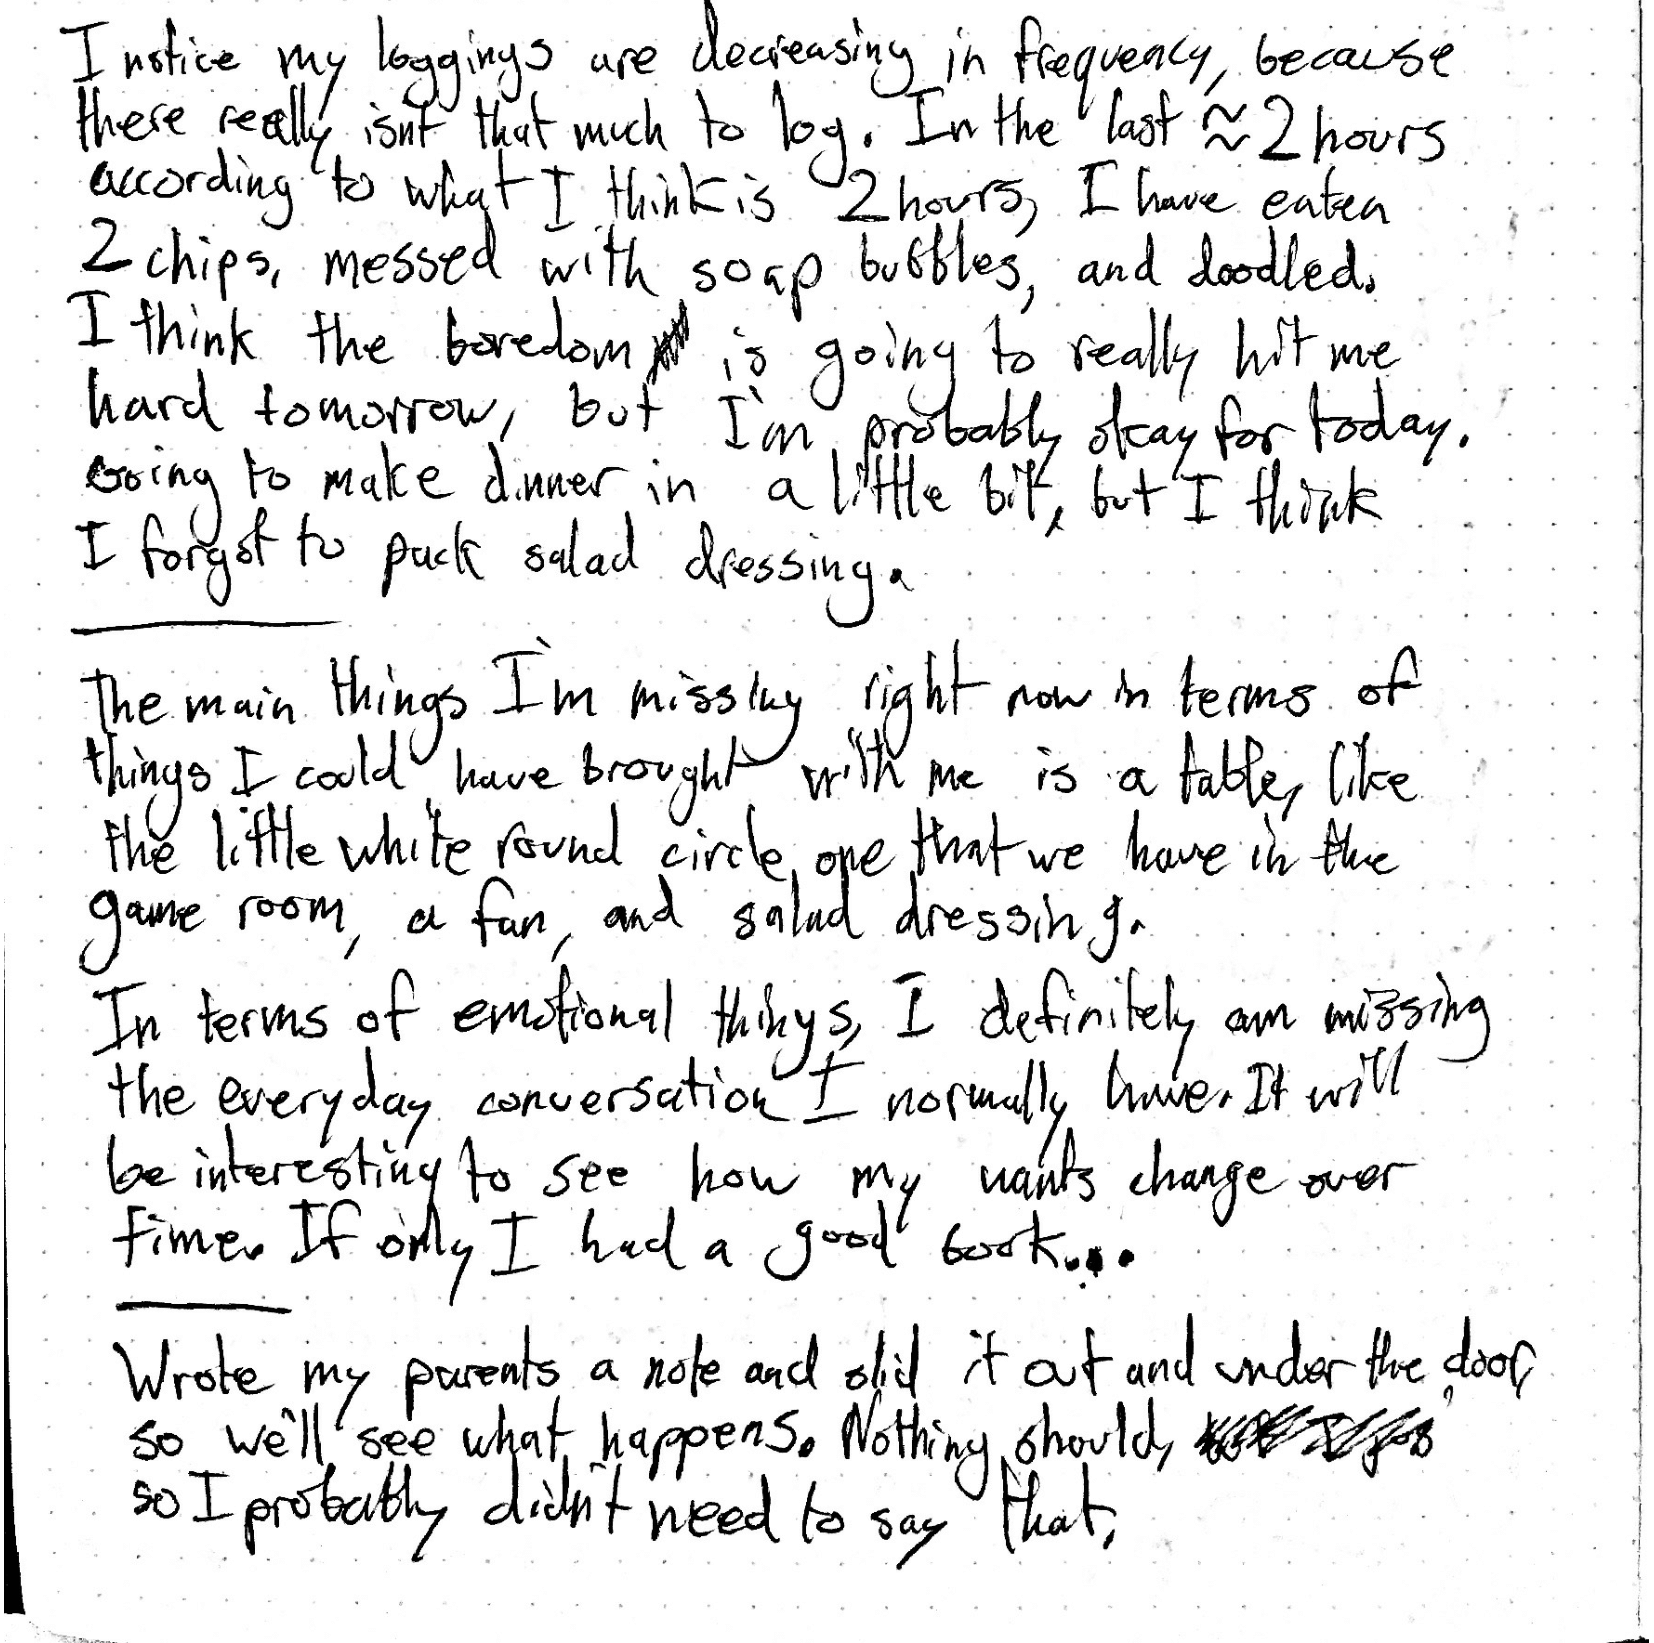 I notice my loggings are decreasing in frequency, because
there really isnt that much to log. In the last ≈2 hours
according to what I think is 2 hours, I have eaten
2 chips, messed with soap bubbles, and doodled.
I think the boredom is going to really hit me
hard tomorrow, but I'm probably okay for today.
Going to make dinner in a little bit, but I think
I forgot to pack salad dressing.
The main things I'm missing right now in terms of
things I could have brought with me is a table, like
the little white round circle one that we have in the
game room, a fan, and salad dressing.
In terms of emotional things, I definitely am missing
the everyday conversation I normally have. It will
be interesting to see how my wants change over
time. If only I had a good book...
Wrote my parents a note and slid it out and under the door,
so we'll see what happens. Nothing should,
so I probably didn't need to say that.